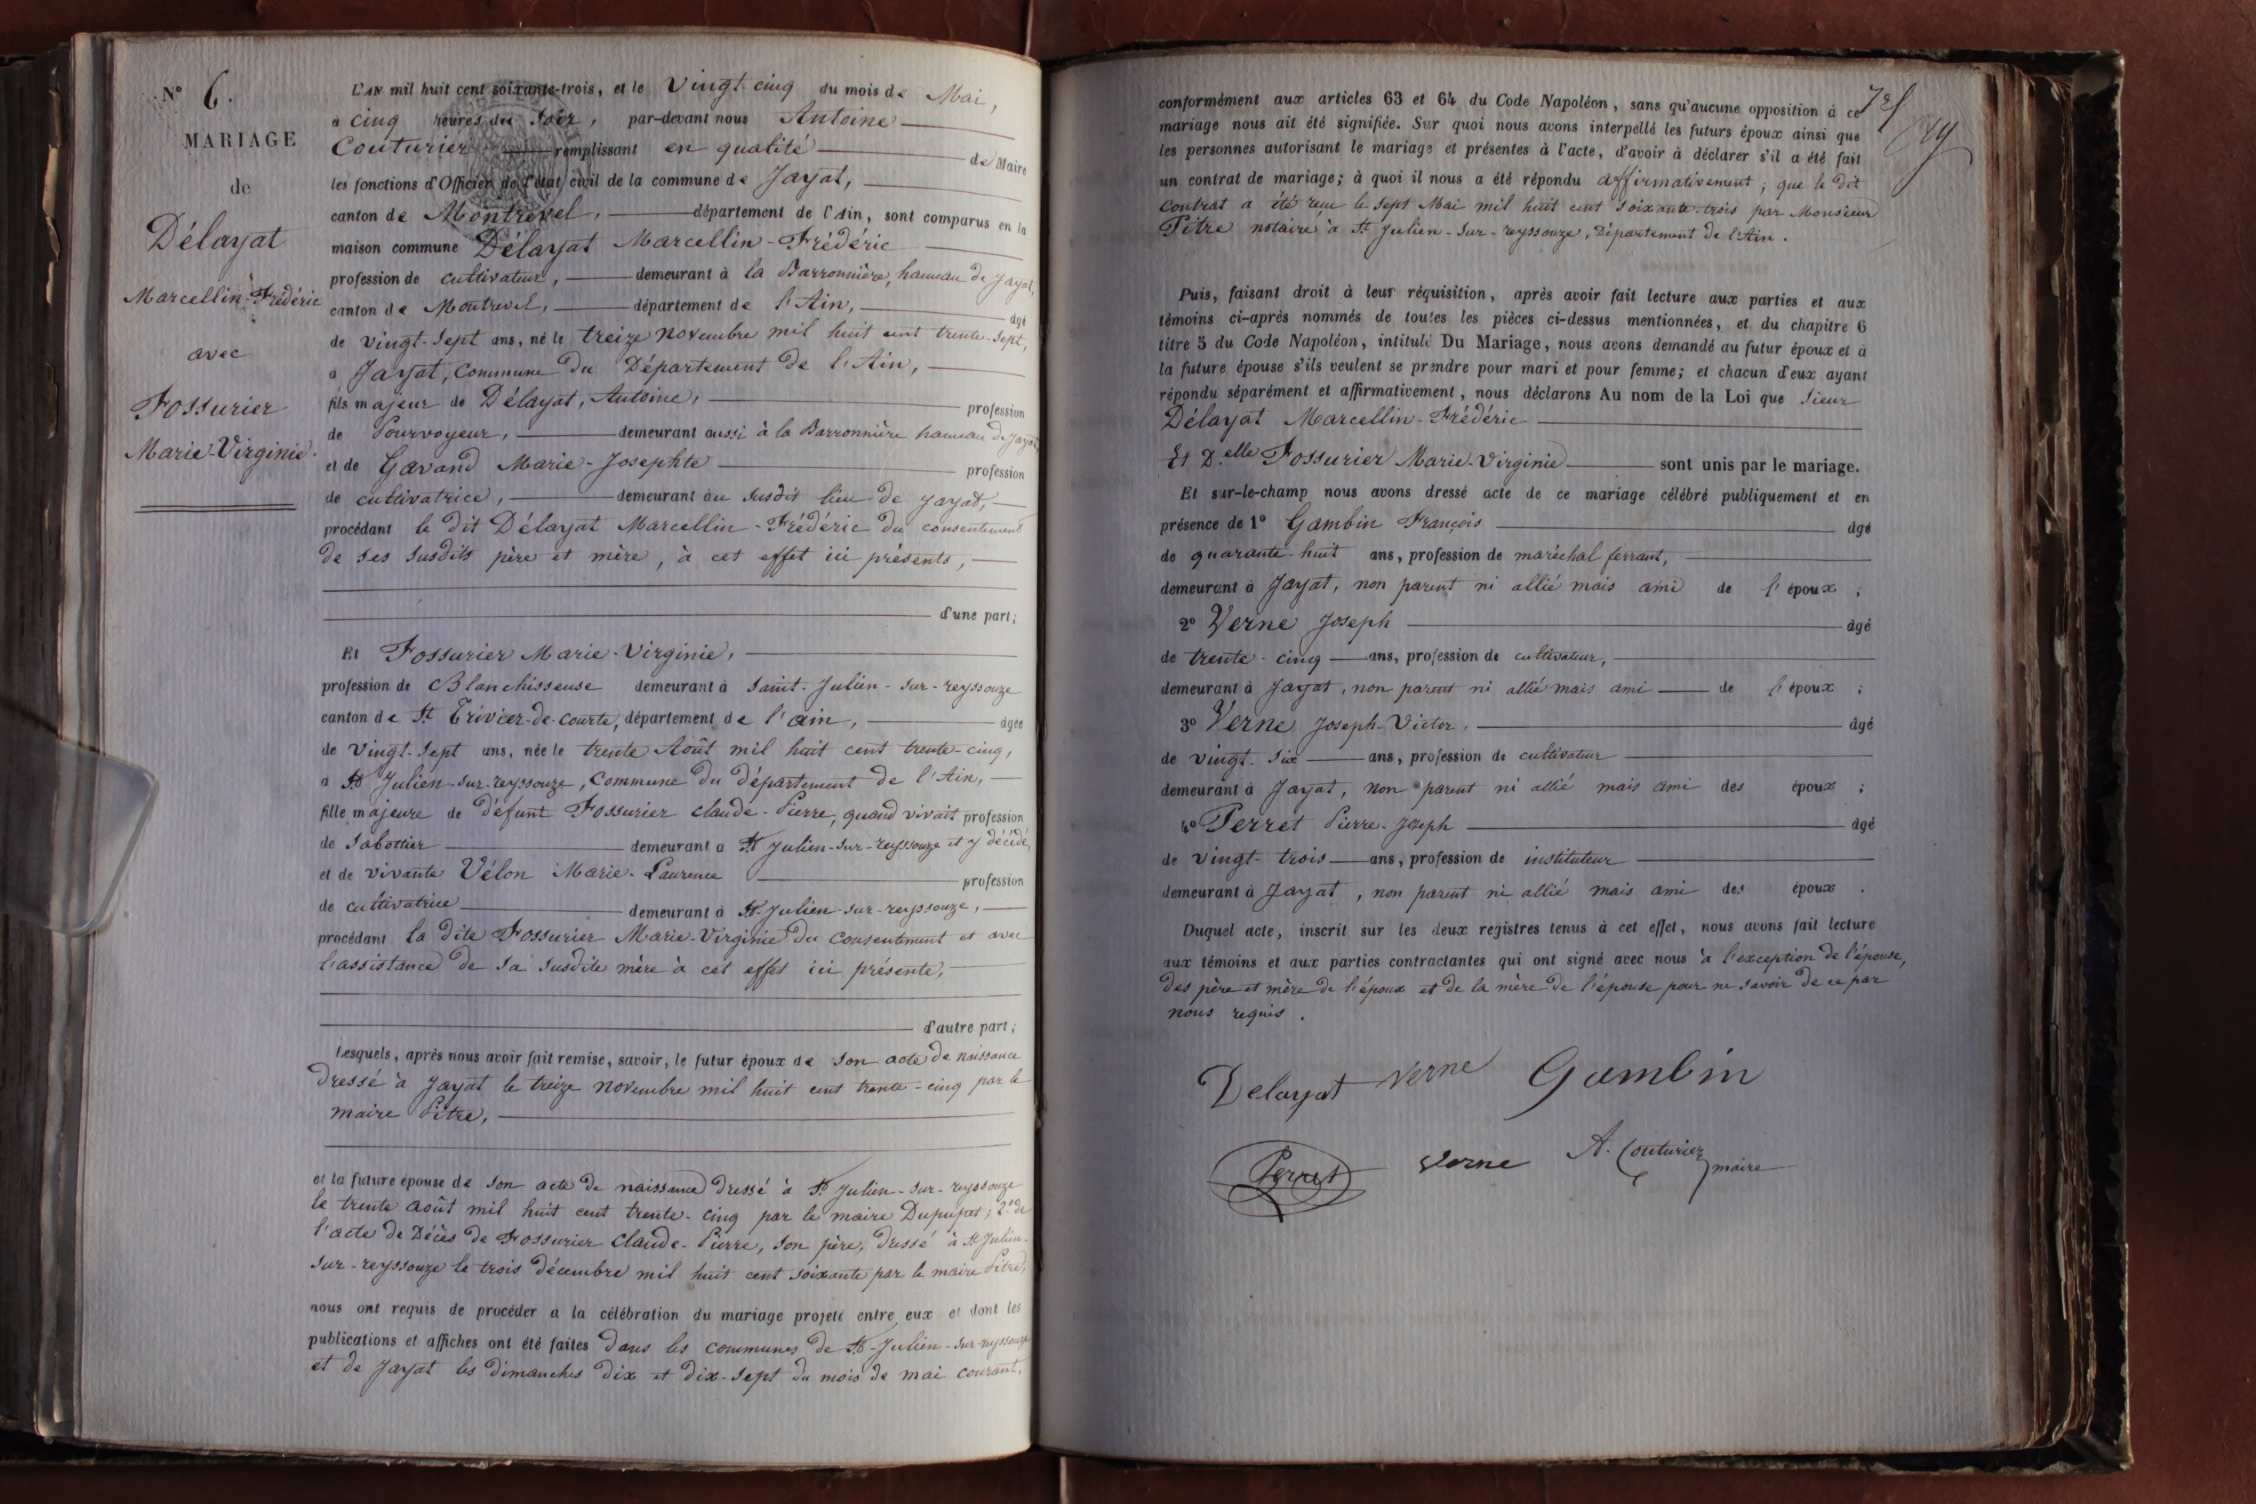 N° 6.
MARIAGE
de
Délayat
Marcellin-Frédéric
avec
Fossurier
Marie-Virginie.
L'AN mil huit cent soixante-trois, et le vingt-cinq du mois de Mai,
a cinq heures du soir, par-devant nous Antoine
Couturier remplissant en qualité de Maire
les fonctions d'Officier de l'état civil de la commune de Jayat,
canton de Montrevel, département de l'Ain, sont comparus en la
maison commune Délayat Marcellin-Frédéric
profession de cultivateur, demeurant à la Barronnière, hameau de Jayat,
canton de Montrevel, département de l'Ain, âgé
de vingt-sept ans, né le treize novembre mil huit cent trente-sept,
a Jayat, commune du Département de l'Ain,
fils majeur de Délayat, Antoine, profession
de Pourvoyeur, demeurant aussi à la Barronnière hameau de Jayat
et de Gavand Marie-Josephte profession
de cultivatrice, demeurant au susdit lieu de Jayat,
procédant le dit Délayat Marcellin-Frédéric du consentement
de ses susdits père et mère, à cet effet ici présents,
d'une part;
Et Fossurier Marie-Virginie,
profession de Blanchisseuse demeurant à Saint-Julien-sur-reyssouze
canton de St Trivier-de-courte, département de l'ain, âgée
de vingt-sept ans, née le trente Août mil huit cent trente-cinq,
a St Julien-sur-reyssouze, commune du département de l'Ain,
fille majeure de défunt Fossurier claude-Pierre, quand vivait profession
de sabottier demeurant a St Julien-sur-reyssouze et y décédé,
et de vivante Vélon Marie-Laurence profession
de cultivatrice demeurant à St-Julien-sur-reyssouze,
procédant la dite Fossurier Marie-Virginie du consentement et avec
l'assistance de sa susdite mère à cet effet ici présente,
d'autre part;
Lesquels, après nous avoir fait remise, savoir, le futur époux de son acte de naissance
dressé à Jayat le treize novembre mil huit cent trente-cinq par le
maire Pitre,
et la future épouse de son acte de naissance dressé à St Julien-sur-reyssouze
le trente août mil huit cent trente-cinq par le maire Dupupet; 2° de
l'acte de Décès de Fossurier claude-Pierre, son père, dressé à St Julien-
sur-reyssouze le trois décembre mil huit cent soixante par le maire Pitre,
nous ont requis de procéder a la célébration du mariage projeté entre eux et dont les
publications et affiches ont été faites dans les communes de St-Julien-sur-reyssouze
et de Jayat les dimanches dix et dix-sept du mois de mai courant,
conformément aux articles 63 et 64 du Code Napoléon, sans qu'aucune opposition à ce
mariage nous ait été signifiée. Sur quoi nous avons interpellé les futurs époux ainsi que
les personnes autorisant le mariage et présentes à l'acte, d'avoir à déclarer s'il a été fait
un contrat de mariage; à quoi il nous a été répondu affirmativement; que le dit
contrat a été reçu le sept Mai mil huit cent soixante-trois par Monsieur
Pitre notaire à St Julien-sur-reyssouze, Département de l'Ain.
Puis, faisant droit à leur réquisition, après avoir fait lecture aux parties et aux
témoins ci-après nommés de toutes les pièces ci-dessus mentionnées, et du chapitre 6
titre 5 du Code Napoléon, intitulé Du Mariage, nous avons demandé au futur époux et à
la future épouse s'ils veulent se prendre pour mari et pour femme; et chacun d'eux ayant
répondu séparément et affirmativement, nous déclarons Au nom de la Loi que sieur
Délayat Marcellin-Frédéric
Et D.elle Fossurier Marie-Virginie sont unis par le mariage.
Et sur-le-champ nous avons dressé acte de ce mariage célébré publiquement et en
présence de 1° Gambin François âgé
de quarante-huit ans, profession de maréchal ferrant,
demeurant à Jayat, non parent ni allié mais ami de l'époux;
2° Verne Joseph âgé
de trente-cinq ans, profession de cultivateur,
demeurant à Jayat, non parent ni allié mais ami de l'époux;
3° Verne Joseph-Victor, âgé
de vingt-six ans, profession de cultivateur
demeurant à Jayat, non parent ni allié mais ami des époux;
4° Perret Pierre-Joseph âgé
de vingt-trois ans, profession de instituteur
demeurant à Jayat, non parent ni allié mais ami des époux.
Duquel acte, inscrit sur les deux registres tenus à cet effet, nous avons fait lecture
aux témoins et aux parties contractantes qui ont signé avec nous à l'exception de l'épouse,
des père et mère de l'époux et de la mère de l'épouse pour ne savoir de ce par
nous requis.
Delayat Verne Gambin
Perret Verne A. Couturier maire